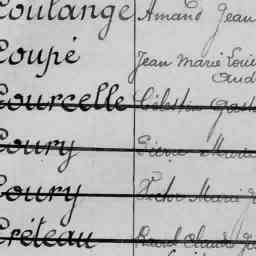 Coulange Amand Jean
Coupé Jean Marie Louis
Courcelle Célestin
Coury Pierre Marie
Coury Victor Marie
Créteau Raoul Claude